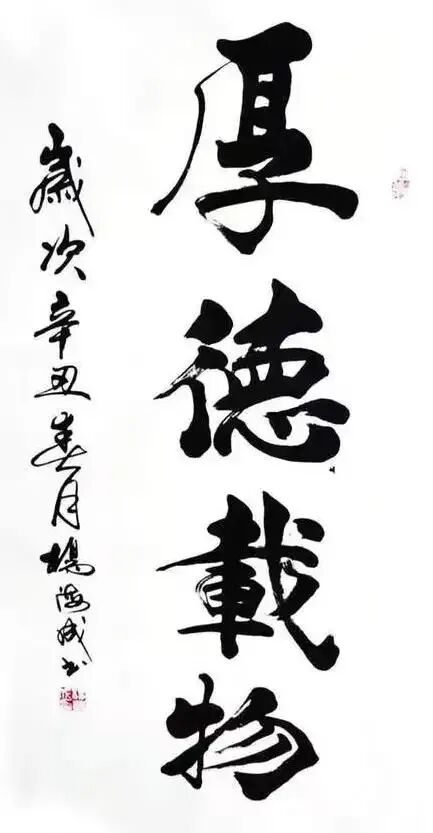 厚德載物
歲次辛丑春月楊海成書